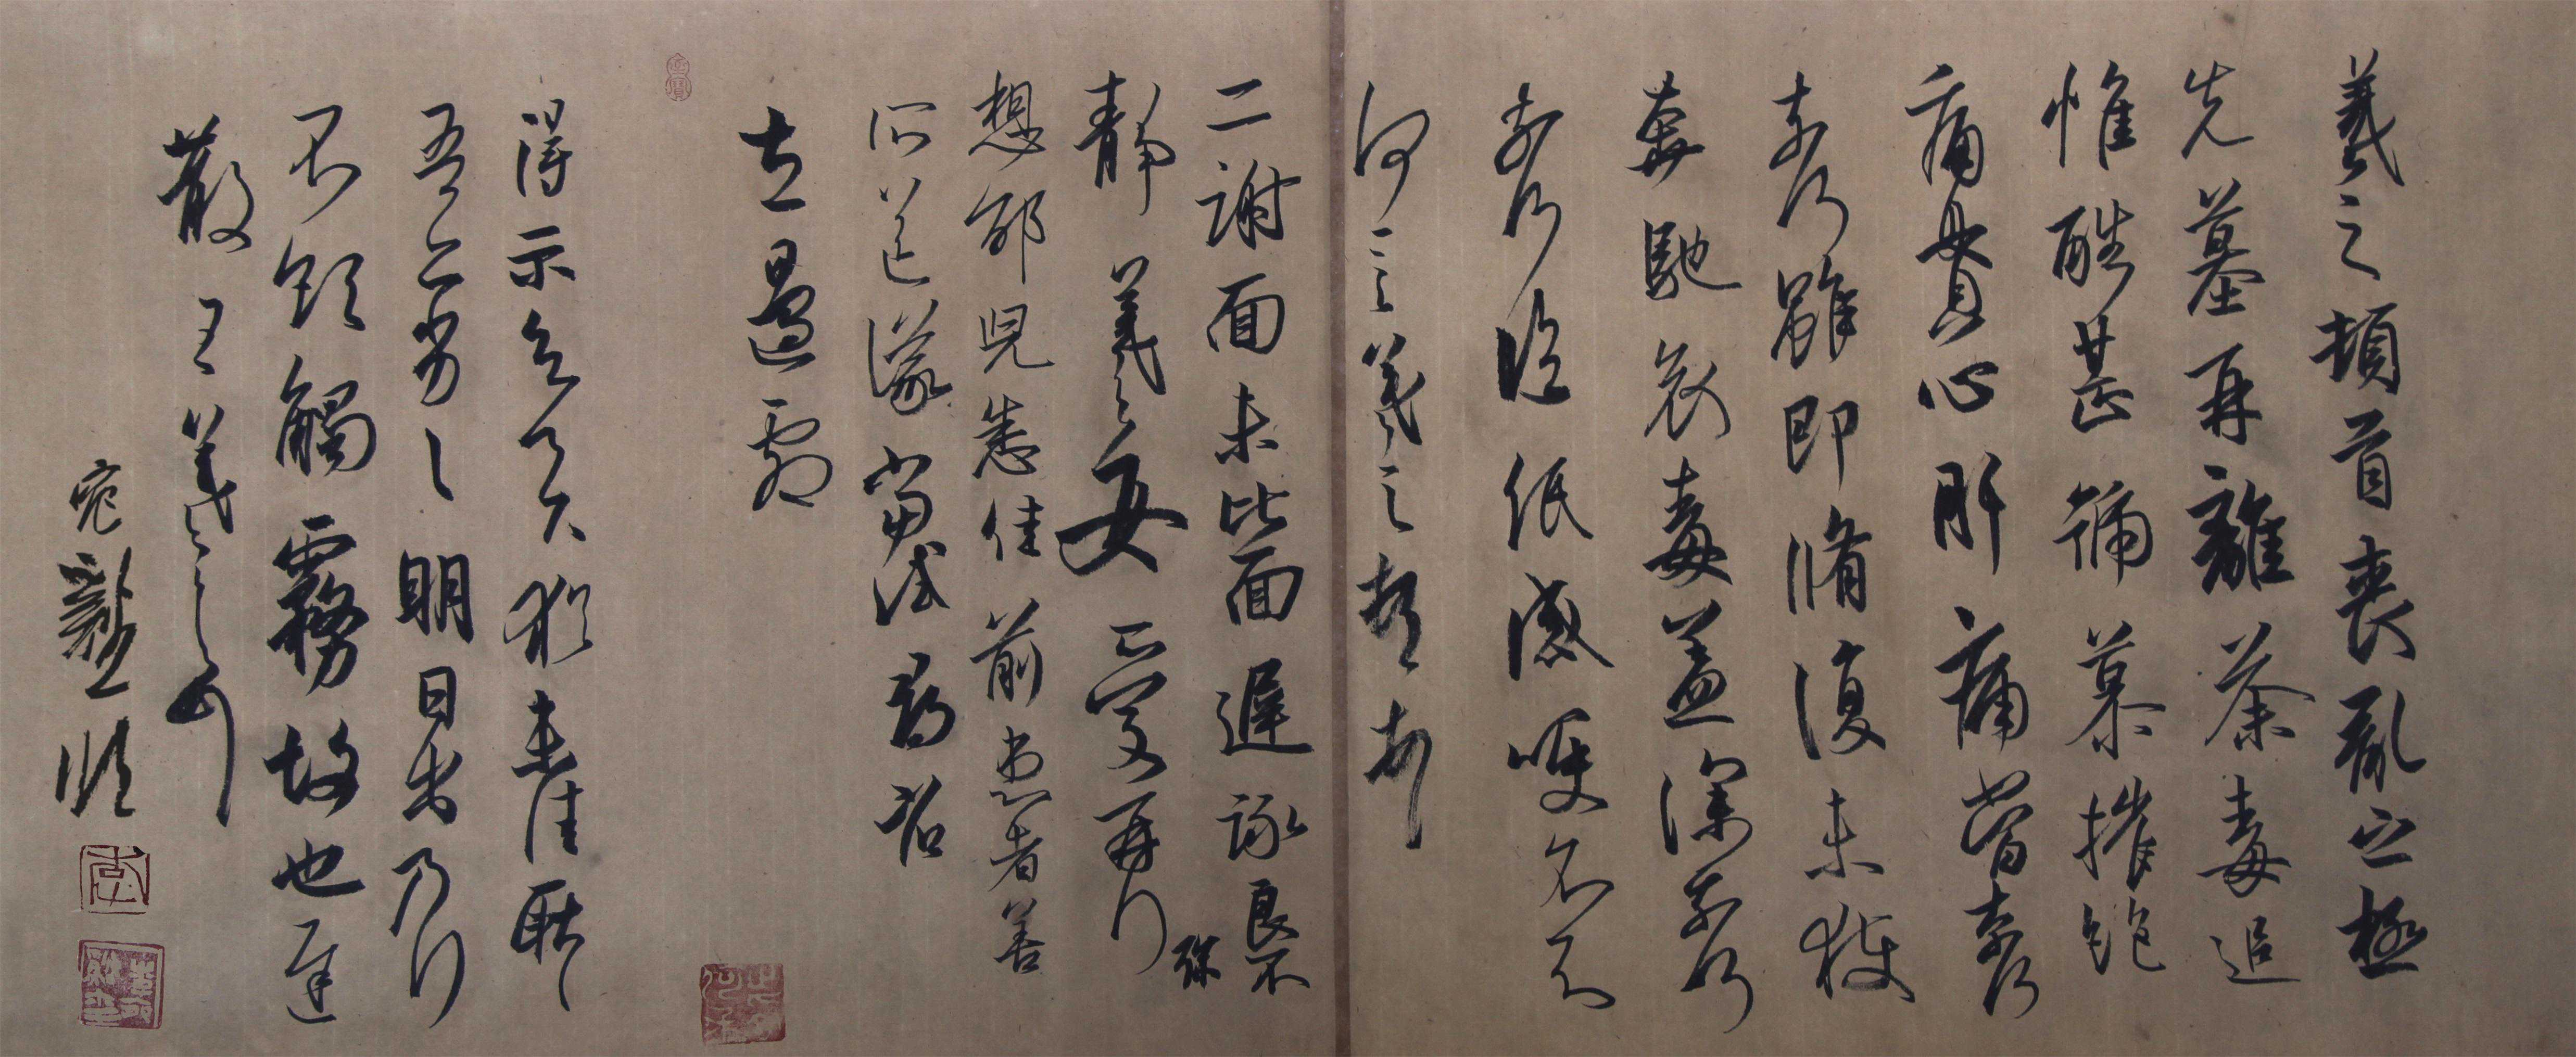 羲之頓首喪亂之極
先墓再離荼毒追
惟酷甚號慕摧絕
痛貫心肝痛當奈何
奈何雖即脩復未獲
奔馳哀毒益深奈何
奈何臨紙感哽不知
何言羲之頓首頓首
二謝面未比面遲詠良不
靜羲之女愛再拜
想邰兒悉佳前患者善
所送議當試尋省
左邊劇
得示知足下猶未佳耿耿
吾亦劣劣明日出乃行
不欲觸霧故也遲
散王羲之頓首
臨